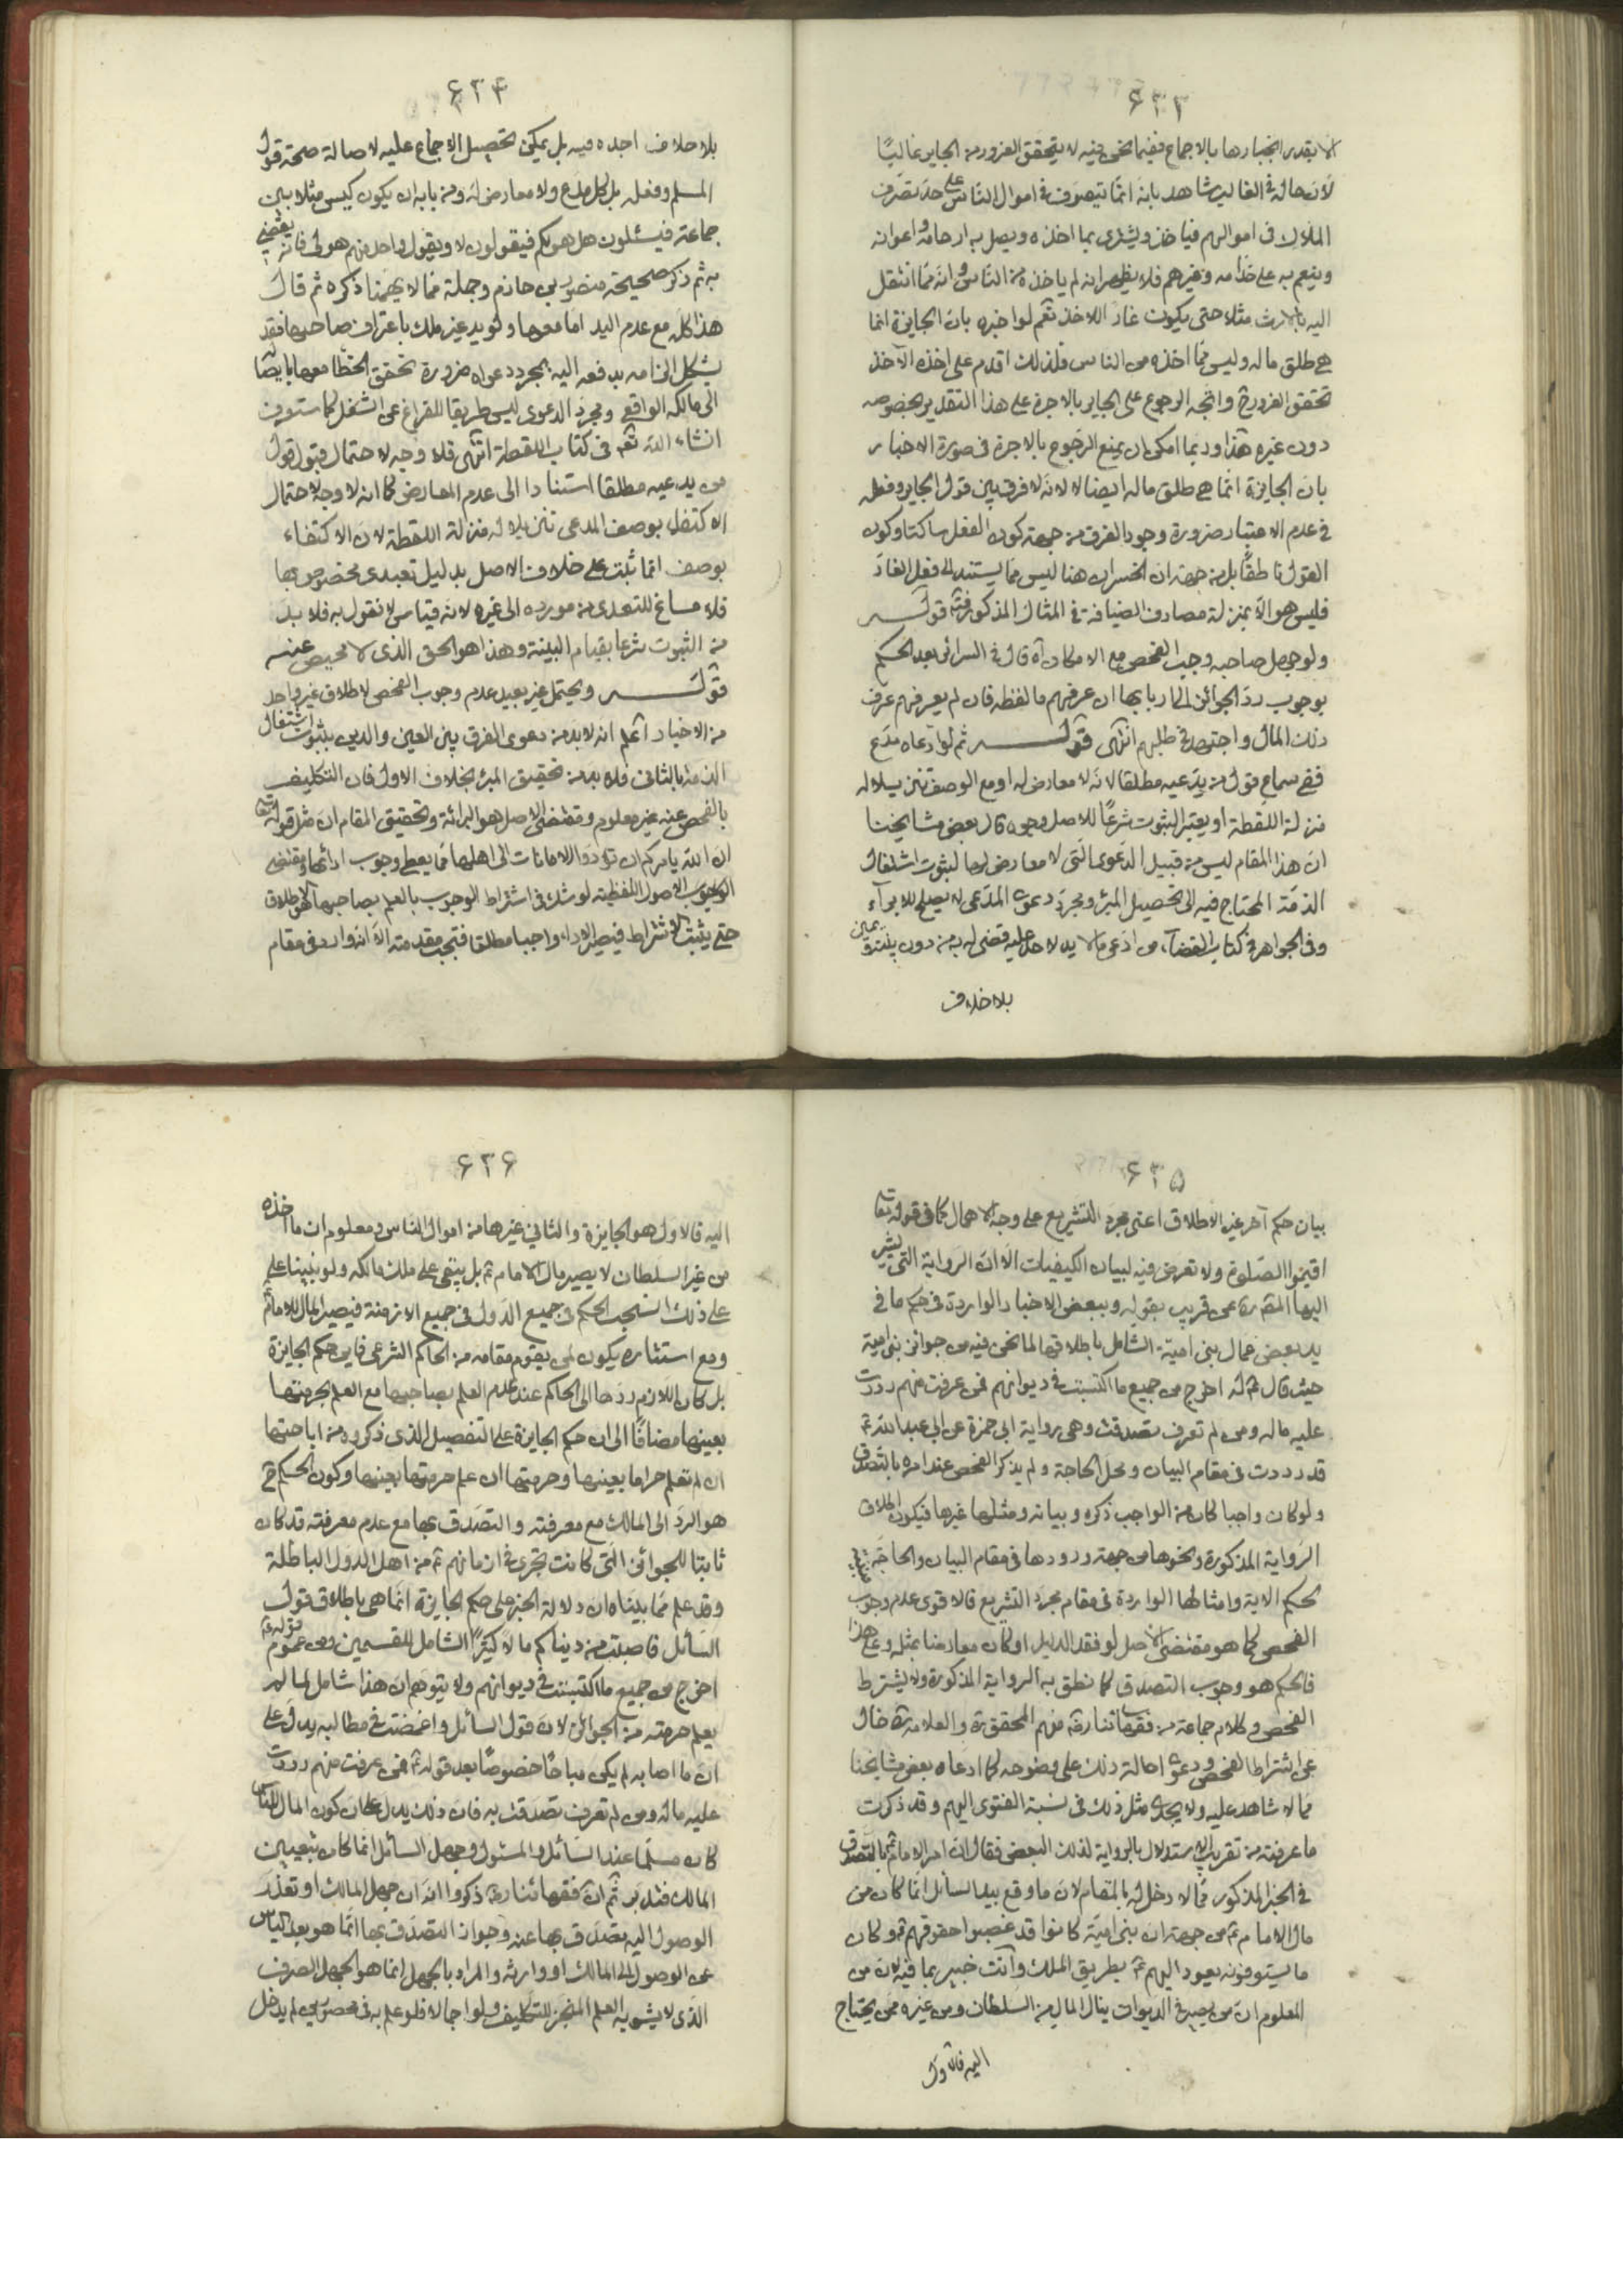 ۶۳۳
الا بقدر انجبارها بالاجماع ففيما نحن فيه لا يتحقق الغرور من الجاير غالبًا
لان حاله في الغالب شاهد بانه انما يتصرف في اموال الناس على حد تصرف
الملاك في اموالهم فياخذ ويشترى بما اخذه ويصل به ارحامه واعوانه
وينعم به على خدامه وغيرهم فلا يظهر انه لم ياخذه من الناس وانه مما انتقل
اليه بالارث مثلا حتى يكون غارا للاخذ نعم لو اخبره بان الجايزة انما
هي طلق ماله وليس مما اخذه من الناس فلذلك اقدم على اخذه الآخذ
تحقق الغرور ح واتجه الرجوع على الجاير بالاجرة على هذا التقدير بخصوصه
دون غيره هذا وربما امكن ان يمنع الرجوع بالاجرة في صورة الاخبار
بان الجايزة انما هي طلق ماله ايضا لا لانه لا فرق بين قول الجاير وفعله
في عدم الاعتبار ضرورة وجود الفرق من جهة كون الفعل ساكتا وكون
القول ناطقًا بل من جهة ان الخسران هنا ليس مما يستند الى فعل الغار
فليس هو الا بمنزلة مصارف الضيافة في المثال المذكور فتدبر قوله
ولو جهل صاحبه وجب الفحص مع الامكان اه قال في السرائر بعد الحكم
بوجوب رد الجوائز الى اربابها ان عرفهم ما لفظه فان لم يعرفهم عرف
ذلك المال واجتهد في طلبهم انتهى قوله ثم لو ادعاه مدع
ففي سماع قول من يدعيه مطلقا لانه لا معارض له او مع الوصف تنزيلا له
منزلة اللقطة او يعتبر الثبوت شرعًا للاصل وجوه قال بعض مشايخنا
ان هذا المقام ليس من قبيل الدعوى التي لا معارض لها لثبوت اشتغال
الذمة المحتاج فيه الى تحصيل المبرء ومجرد دعوى المدعى لا يصلح للابراء
وفي الجواهر في كتاب القضاء من ادعى ما لا يد لاحد عليه قضى له به من دون بينة ويمين
بلا خلاف
۶۳۴
بلا خلاف اجده فيه بل يمكن تحصيل الاجماع عليه لاصالة صحة قول
المسلم وفعله بل كل مدع ولا معارض له ومن بابه ان يكون كيس مثلا بين
جماعة فيسئلون هل هو لكم فيقولون لا ويقول واحد منهم هو لى فانه يقضى
به ثم ذكر صحيحة منصور بن حازم وجملة مما لا يهمنا ذكره ثم قال
هذا كله مع عدم اليد اما معها ولو يد غير ملك باعتراف صاحبها فقد
يشكل الزامه بدفعه اليه بمجرد دعواه ضرورة تحقق الخطا معها بايصا
الى مالكه الواقعي ومجرد الدعوى ليس طريقا للفراغ عن الشغل كما ستعرف
انشاء الله تعم في كتاب اللقطة انتهى فلا وجه لاحتمال قبول قول
من يدعيه مطلقا استنادا الى عدم المعارض كما انه لا وجه لاحتمال
الاكتفاء بوصف المدعى تنزيلا له منزلة اللقطة لان الاكتفاء
بوصف انما ثبت على خلاف الاصل بدليل تعبدى مخصوص بها
فلا مساغ للتعدى من مورده الى غيره لانه قياس لا نقول به فلا بد
من الثبوت شرعا بقيام البينة وهذا هو الحق الذى لا محيص عنه
قوله ويحتمل غير بعيد عدم وجوب الفحص لاطلاق غير واحد
من الاخبار اعلم انه لا بد من دعوى الفرق بين العين والدين بثبوت اشتغال
الذمة بالثانى فلا بد من تحقيق المبرء بخلاف الاول فان التكليف
بالفحص عنه غير معلوم ومقتضى الاصل هو البرائة وتحقيق المقام ان مثل قوله تعا
ان الله يامركم ان تؤدوا الامانات الى اهلها مما يعطى وجوب ادائها ومقتضى
الوجوب الاصول اللفظية لو شك في اشتراط الوجوب بالعلم بصاحبها هو الاطلاق
حتى يثبت الاشتراط فيصير الاداء واجبا مطلقا فتجب مقدمته الا انه وارد في مقام
۶۳۵
بيان حكم آخر غير الاطلاق اعنى مجرد التشريع على وجه الاهمال كما في قوله تعا
اقيموا الصلوة ولا تعرض فيه لبيان الكيفيات الا ان الرواية التي يشير
اليها المقره عن قريب بقوله وببعض الاخبار الواردة في حكم ما في
يد بعض عمال بنى امية الشامل باطلاقها لما نحن فيه من جوائز بنى امية
حيث قال ع له اخرج من جميع ما اكتسبت في ديوانهم فمن عرفت منهم رددت
عليه ماله ومن لم تعرف تصدقت وهي رواية ابى حمزة عن ابى عبد الله ع
قد وردت في مقام البيان ومحل الحاجة ولم يذكر الفحص عند امره بالتصدق
ولو كان واجبا كان من الواجب ذكره وبيانه ومثلها غيرها فيكون اطلاق
الرواية المذكورة ونحوها من جهة ورودها في مقام البيان والحاجة
لحكم الاية وامثالها الواردة في مقام مجرد التشريع فالاقوى عدم وجوب
الفحص كما هو مقتضى الاصل لو فقد الدليل او كان معارضا بمثله وعلى هذا
فالحكم هو وجوب التصدق كما نطق به الرواية المذكورة ولا يشترط
الفحص وكلام جماعة من فقهائنا رض منهم المحقق ره والعلامة ره خال
عن اشتراط الفحص ودعوى احالة ذلك على وضوحه كما ادعاه بعض مشايخنا
مما لا شاهد عليه ولا يجدى مثل ذلك في نسبة الفتوى اليهم وقد ذكرت
ما عرفته من تقريب الاستدلال بالرواية لذلك البعض فقال ان امر الامام ع بالتصدق
في الخبر المذكور مما لا دخل له بالمقام لان ما وقع بيد السائل انما كان من
مال الامام ع من جهة ان بنى امية كانوا قد غصبوا حقوقهم ع وكان
ما يستوفونه يعود اليهم ع بطريق الملك وانت خبير بما فيه لان من
المعلوم ان من يصير في الديوان ينال المال من السلطان ومن غيره ممن يحتاج
اليه فالاول
۶۳۶
اليه فالاول هو الجايزة والثاني غيرها من اموال الناس ومعلوم ان ما اخذه
من غير السلطان لا يصير مال الامام ع بل يبقى على ملك مالكه ولو بنينا على
على ذلك انسحب الحكم في جميع الدول في جميع الازمنة فيصير المال للامام ع
ومع استتاره يكون لمن يقوم مقامه من الحاكم الشرعى فاين حكم الجايزة
بل كان اللازم ردها الى الحاكم عند عدم العلم بصاحبها مع العلم بحرمتها
بعينها مضافًا الى ان حكم الجايزة على التفصيل الذى ذكروه من اباحتها
ان لم تعلم حراما بعينها وحرمتها ان علم حرمتها بعينها وكون الحكم ح
هو الرد الى المالك مع معرفته والتصدق بها مع عدم معرفته قد كان
ثابتا للجوائز التى كانت تجرى في ازمانهم ع من اهل الدول الباطلة
وقد علم مما بيناه ان دلالة الخبر على حكم الجايزة انما هي باطلاق قول
السائل فاصبت من دنياكم مالا كثيرًا الشامل للقسمين ومن عموم قوله ع
اخرج من جميع ما اكتسبت في ديوانهم ولا يتوهم ان هذا شامل لما لم
يعلم حرمته من الجوائز لان قول السائل واغمضت في مطالبه يدل على
ان ما اصابه لم يكن مباحًا خصوصًا بعد قوله ع فمن عرفت منهم رددت
عليه ماله ومن لم تعرف تصدقت به فان ذلك يدل على ان كون المال للناس
كان مسلما عند السائل والمسئول وجهل السائل انما كان بتعيين
المالك فتدبر ثم ان فقهائنا رض ذكروا انه ان جهل المالك او تعذر
الوصول اليه تصدق بها عنه وجواز التصدق بها انما هو بعد الياس
عن الوصول الى المالك او وارثه والمراد بالجهل انما هو الجهل الصرف
الذى لا يشوبه العلم المنجز للتكليف ولو اجمالا فلو علم به في محصورين لم يدخل